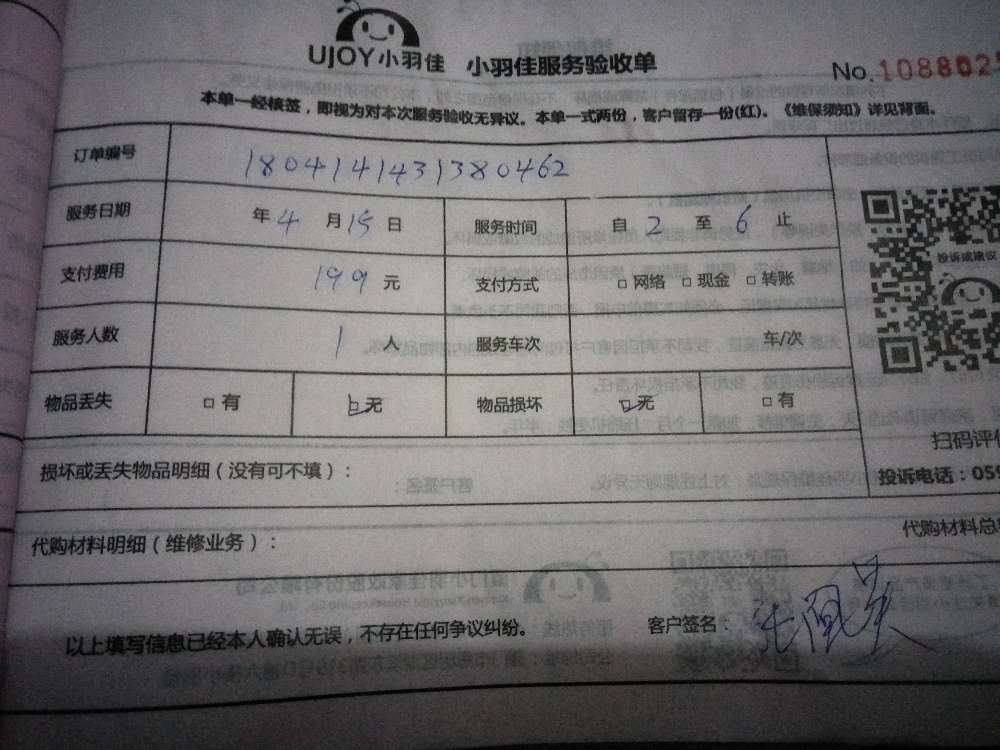 UJOY小羽佳 小羽佳服务验收单
No.108802
本单一经核签，即视为对本次服务验收无异议。本单一式两份，客户留存一份(红)。《维保须知》详见背面。
订单编号 18041414313804​62
服务日期 年 4 月 15 日 服务时间 自 2 至 6 止
投诉或建议
支付费用 199 元 支付方式 □ 网络 □ 现金 □ 转账
服务人数 1 人 服务车次 车/次
物品丢失 □ 有 □无 物品损坏 □无 □ 有
扫码评
损坏或丢失物品明细（没有可不填）：
投诉电话：059
代购材料明细（维修业务）： 代购材料总
以上填写信息已经本人确认无误，不存在任何争议纠纷。 客户签名：